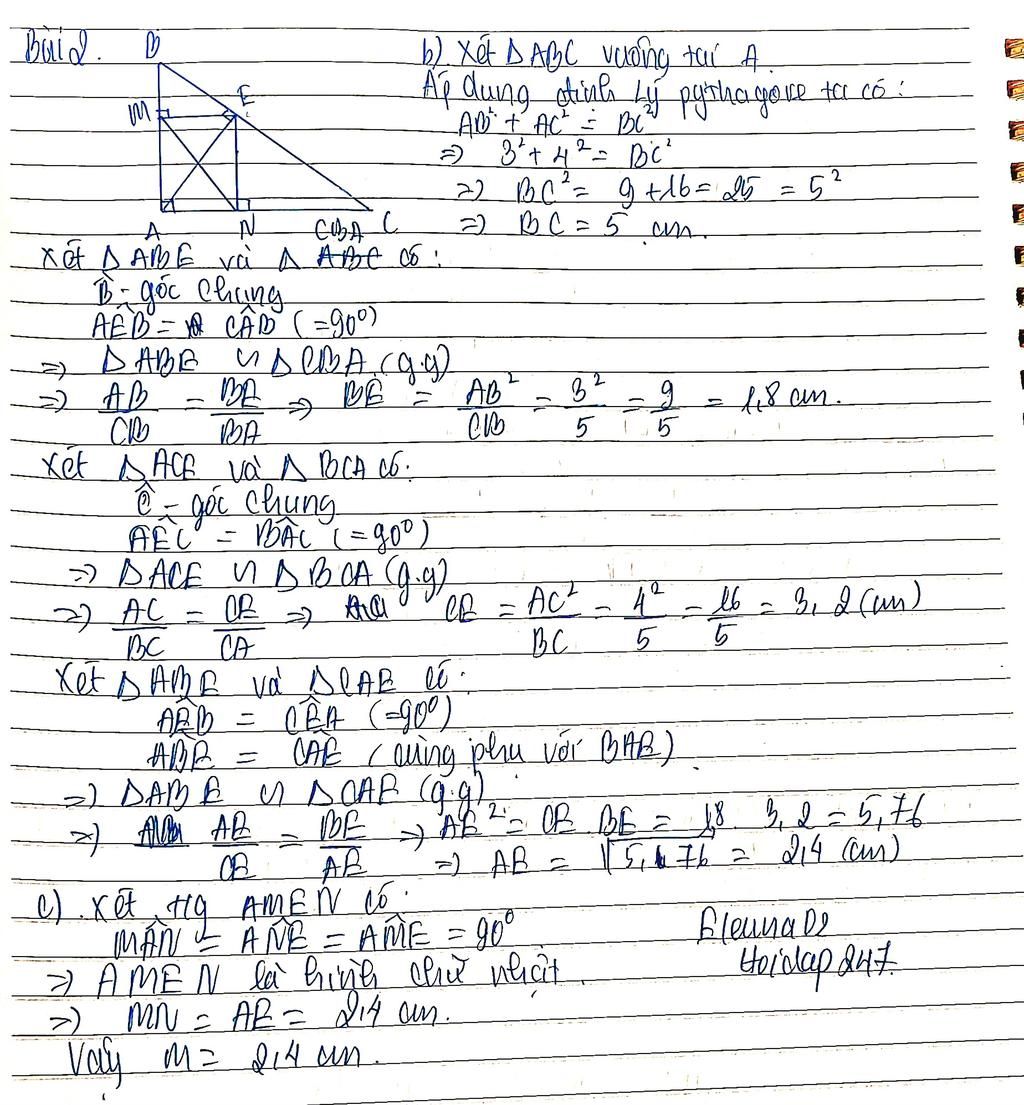 Bài 2.
B
M
E
A
N
C
b) Xét Δ ABC vuông tại A.
Áp dụng định Lý pythagore ta có:
AB² + AC² = BC²
=> 3² + 4² = BC²
=> BC² = 9 + 16 = 25 = 5²
=> BC = 5 cm.
CBA
Xét Δ ABE và Δ ABC có:
B̂ - góc chung
AÊB = CÂB (=90⁰)
=> Δ ABE ∽ Δ CBA (g.g)
=> AB/CB = BE/BA => BE = AB²/CB = 3²/5 = 9/5 = 1,8 cm.
Xét Δ ACE và Δ BCA có:
Ĉ - góc chung
AÊC = BÂC (=90⁰)
=> Δ ACE ∽ Δ BCA (g.g)
=> AC/BC = CE/CA => CE = AC²/BC = 4²/5 = 16/5 = 3,2 (cm)
Xét Δ ABE và Δ CAE có:
AÊB = CÊA (=90⁰)
AB̂E = CÂE (cùng phụ với BAE)
=> Δ ABE ∽ Δ CAE (g.g)
=> AE/CE = BE/AE => AE² = CE. BE = 1,8. 3,2 = 5,76
=> AE = √5,76 = 2,4 (cm)
c). Xét tg AMEN có:
MÂN = AN̂E = AM̂E = 90⁰
=> AMEN là hình chữ nhật.
=> MN = AE = 2,4 cm.
Vậy M = 2,4 cm.
Eleuna D2
Hoidap247.